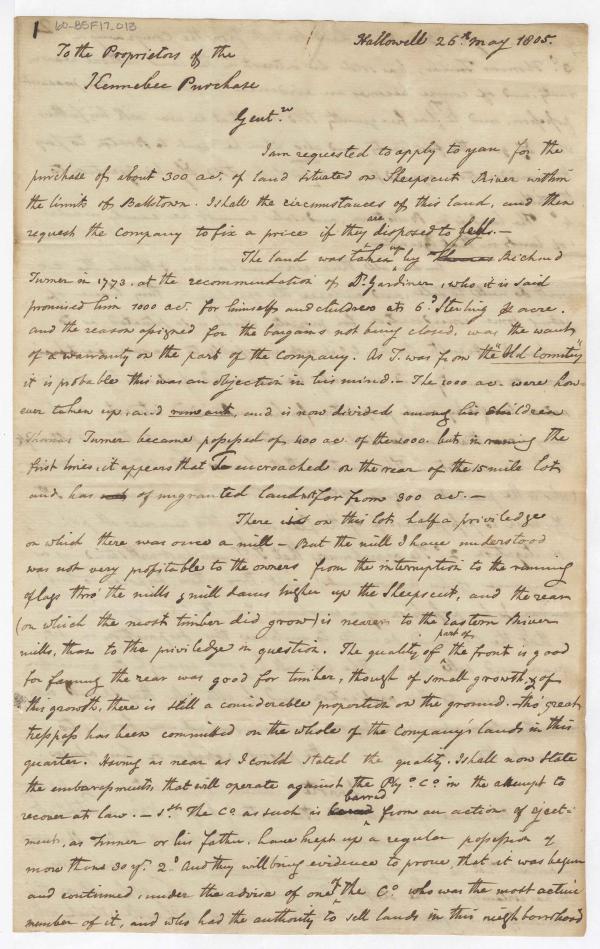 1 60-BSF17-013
Hallowell 26th may 1805.
To the Proprietors of the
Kennebec Purchase
Gentn
I am requested to apply to you for the
purchase of about 300 ac. of land situated on Sheepscut River within
the limits of Balltown. I shall the circumstances of this land, and then
request the Company to fix a price if they are disposed to sell. —
The land was taken up by Richard
Turner in 1773. at the recommendation of Dr Gardiner, who it is said
promised him 1000 ac. for himself and children at 6d Sterling acre.
and the reason assigned for the bargains not being closed, was the want
of a warranty on the part of the Company. As T. was from the "Old Country"
it is probable this was an objection in his mind. — The 1000 ac. were how-
ever taken up, and run out, and is now divided among his children
Thomas Turner became possessed of 400 ac. of the 1000. but in running the
first lines, it appears that T encroached on the rear of the 15 mile lot,
and has of ungranted land not far from 300 ac. —
There is on this lot, half a priviledge
on which there was once a mill — But the mill I have understood
was not very profitable to the owners from the interruption to the running
of logs thro' the mills & mill dams higher up the Sheepscut, and the rear
(on which the most timber did grow) is nearer to the Eastern River
mills, than to the priviledge in question. The quality of part of the front is good
for farming the rear was good for timber, though of small growth, & of
this growth, there is still a considerable proportion on the ground. tho' great
trespass has been committed on the whole of the Company's lands in this
quarter. Having as near as I could stated the quality. I shall now state
the embarassments that will operate against the Ply. Co. in the attempt to
recover at law. — 1st The Co as such is barred from an action of eject-
ment, as Turner or his father, have kept up a regular possession of
more than 30 yr. 2d And they will bring evidence to prove, that it was begun
and continued, under the advise of one of the Co. who was the most active
member of it, and who had the authority to sell lands in this neighbourhood